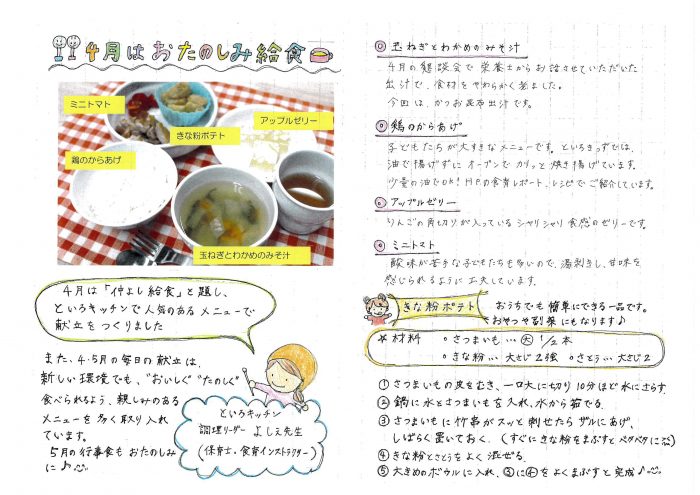 4月はおたのしみ給食
ミニトマト
アップルゼリー
きな粉ポテト
鶏のからあげ
玉ねぎとわかめのみそ汁
4月は「仲よし給食」と題し、
といろキッチンで人気のあるメニューで
献立をつくりました
また、4・5月の毎日の献立は、
新しい環境でも、"おいしく""たのしく"
食べられるよう、親しみのある
メニューを多く取り入れ
ています。
5月の行事食もおたのしみ
に♪
といろキッチン
調理リーダー よしえ先生
(保育士・食育インストラクター)
玉ねぎとわかめのみそ汁
4月の懇談会で栄養士からお話させていただいた
出汁で、食材をやわらかく煮ました。
今回は、かつお昆布出汁です。
鶏のからあげ
子どもたちが大すきなメニューです。といろきっずでは、
油で揚げずにオーブンでカリッと焼き揚げています。
少量の油でOK! HPの食育レポート、レシピでご紹介しています。
アップルゼリー
りんごの角切りが入っているシャリシャリ食感のゼリーです。
ミニトマト
酸味が苦手な子どもたちも多いので、湯剥きし、甘味を
感じられるように工夫しています。
きな粉ポテト
おうちでも簡単にできる一品です。
おやつや副菜にもなります♪
☆材料 ○さつまいも…大 1/2本
○きな粉…大さじ2強 ○さとう…大さじ2
①さつまいもの皮をむき、一口大に切り10分ほど水にさらす
②鍋に水とさつまいもを入れ、水から茹でる。
③さつまいもに竹串がスッと刺せたらザルにあげ、
しばらく置いておく。(すぐにきな粉をまぶすとベタベタに)
④きな粉とさとうをよく混ぜる。
⑤大きめのボウルに入れ、③に④をよくまぶすと完成♪